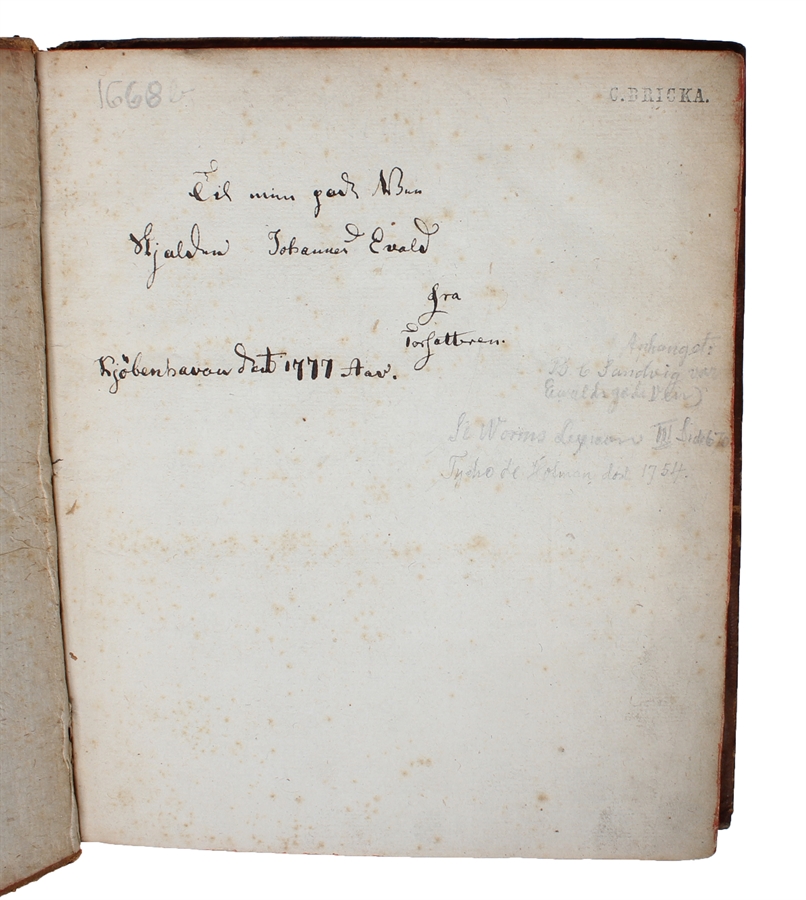 1668
C. BRICKA.
Til min gode Ven
Skjalden Johannes Evald
fra
Forfatteren.
Kjöbenhavn den 1777 Aar.
Anhanget:
B C Sandvig var
Ewalds gode Ven)
Se Worms Lexicon III Side
Tycho de Hofman død 1754.